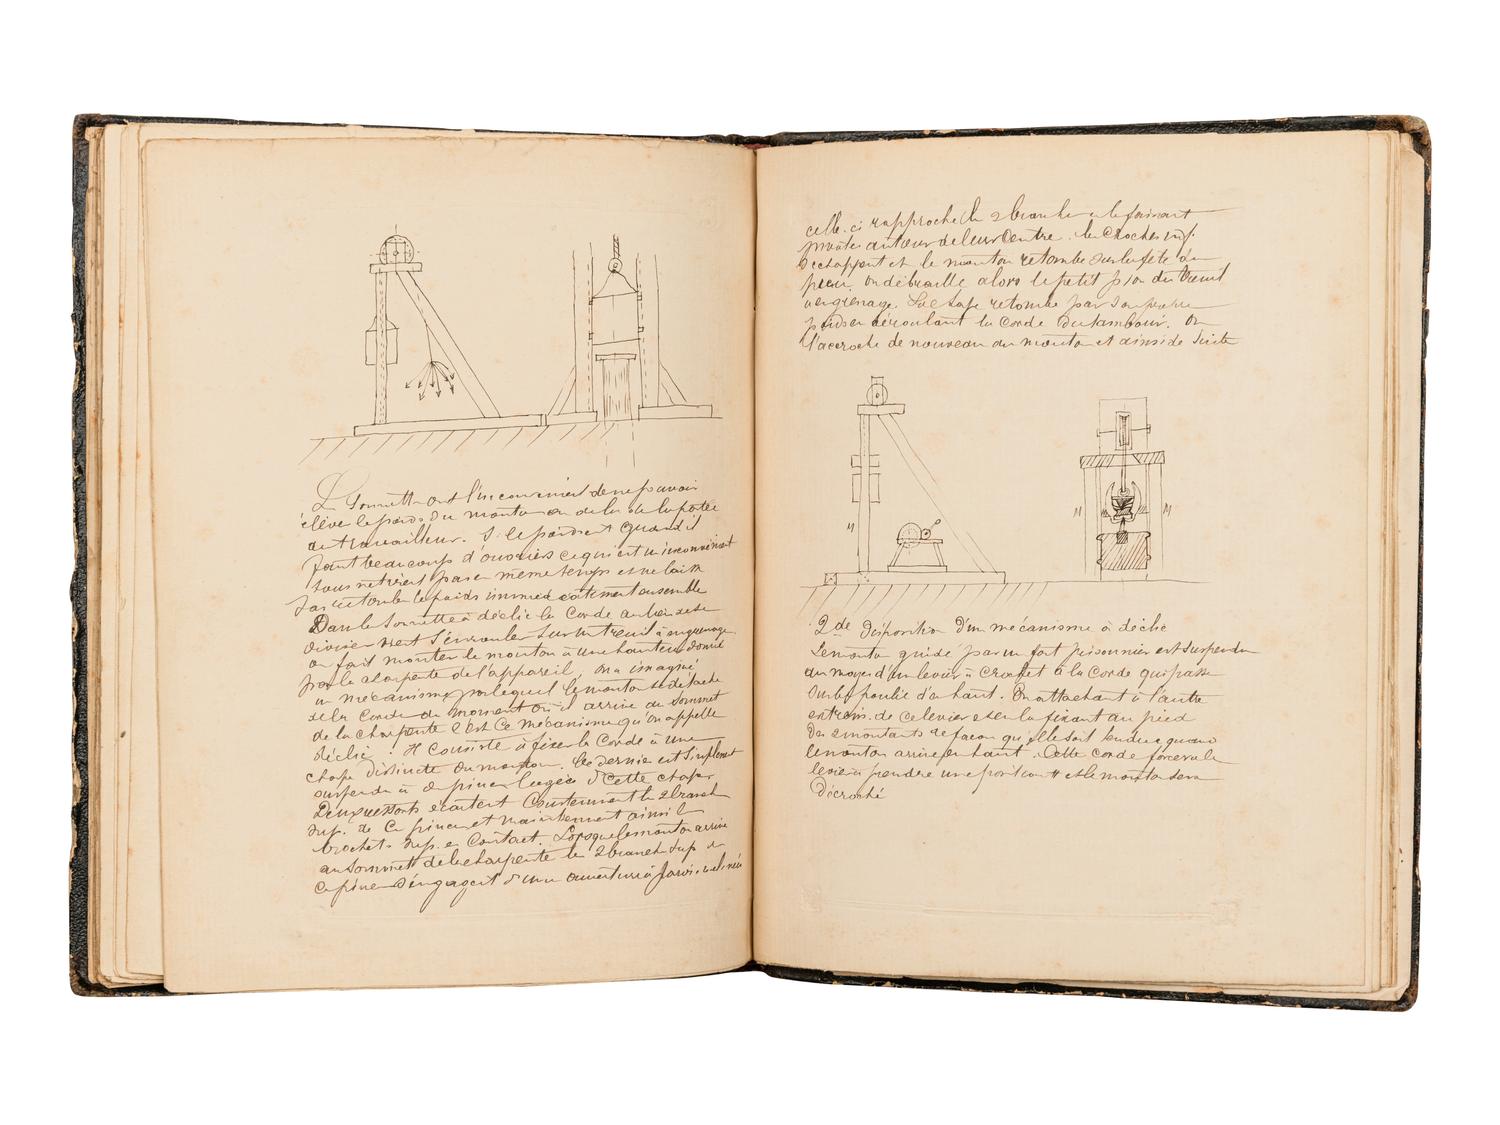 Sonnette ont l'inconvénient de ne pouvoir
élever le poids du mouton au delà de la portée
du travailleur. Si le poids est grand il
faut beaucoup d'ouvriers ce qui est un inconvénient
tous ne tirent pas en même temps et ne laissent
pas retomber le poids immédiatement ensemble
Dans la Sonnette à déclic la Corde au lieu de se
diviser vient s'enrouler sur un treuil à engrenage
on fait monter le mouton à une hauteur donnée
par la charpente de l'appareil, On a imaginé
un mécanisme par lequel le mouton se détache
de la Corde au moment où il arrive au sommet
de la charpente C'est ce mécanisme qu'on appelle
déclic. Il consiste à fixer la Corde à une
chape distincte du mouton. Ce dernier est simplement
suspendu à pince logée à cette chape
Deux ressorts écartent Constamment les 2 branch
sup. de la pince et maintiennent ainsi l
crochets inf. en Contact. Lorsque le mouton arrive
au sommet de la charpente les 2 branch sup de
la pince s'engagent d'une ouverture à parois inclinées
celle-ci rapproche les 2 branches en le faisant
pivoter autour de leur Centre. les Crochets inf.
s'échappent et le mouton retombe sur la tête du
pieu. On débraille alors le petit pion du treuil
à engrenage. La Chape retombe par son propre
poids en déroulant la corde du tambour. On
l'accroche de nouveau au mouton et ainsi de suite
2de Disposition d'un mécanisme à déclic
Le mouton guidé par un fort prisonnier est suspendu
au moyen d'un levier à Crochet à la Corde qui passe
sur la poulie d'en haut. En attachant à l'autre
extrém. de ce levier et en la fixant au pied
des 2 montants de façon qu'elle soit tendue quand
le mouton arrive en haut. Cette corde forcera le
levier à prendre une position et le mouton sera
Décroché